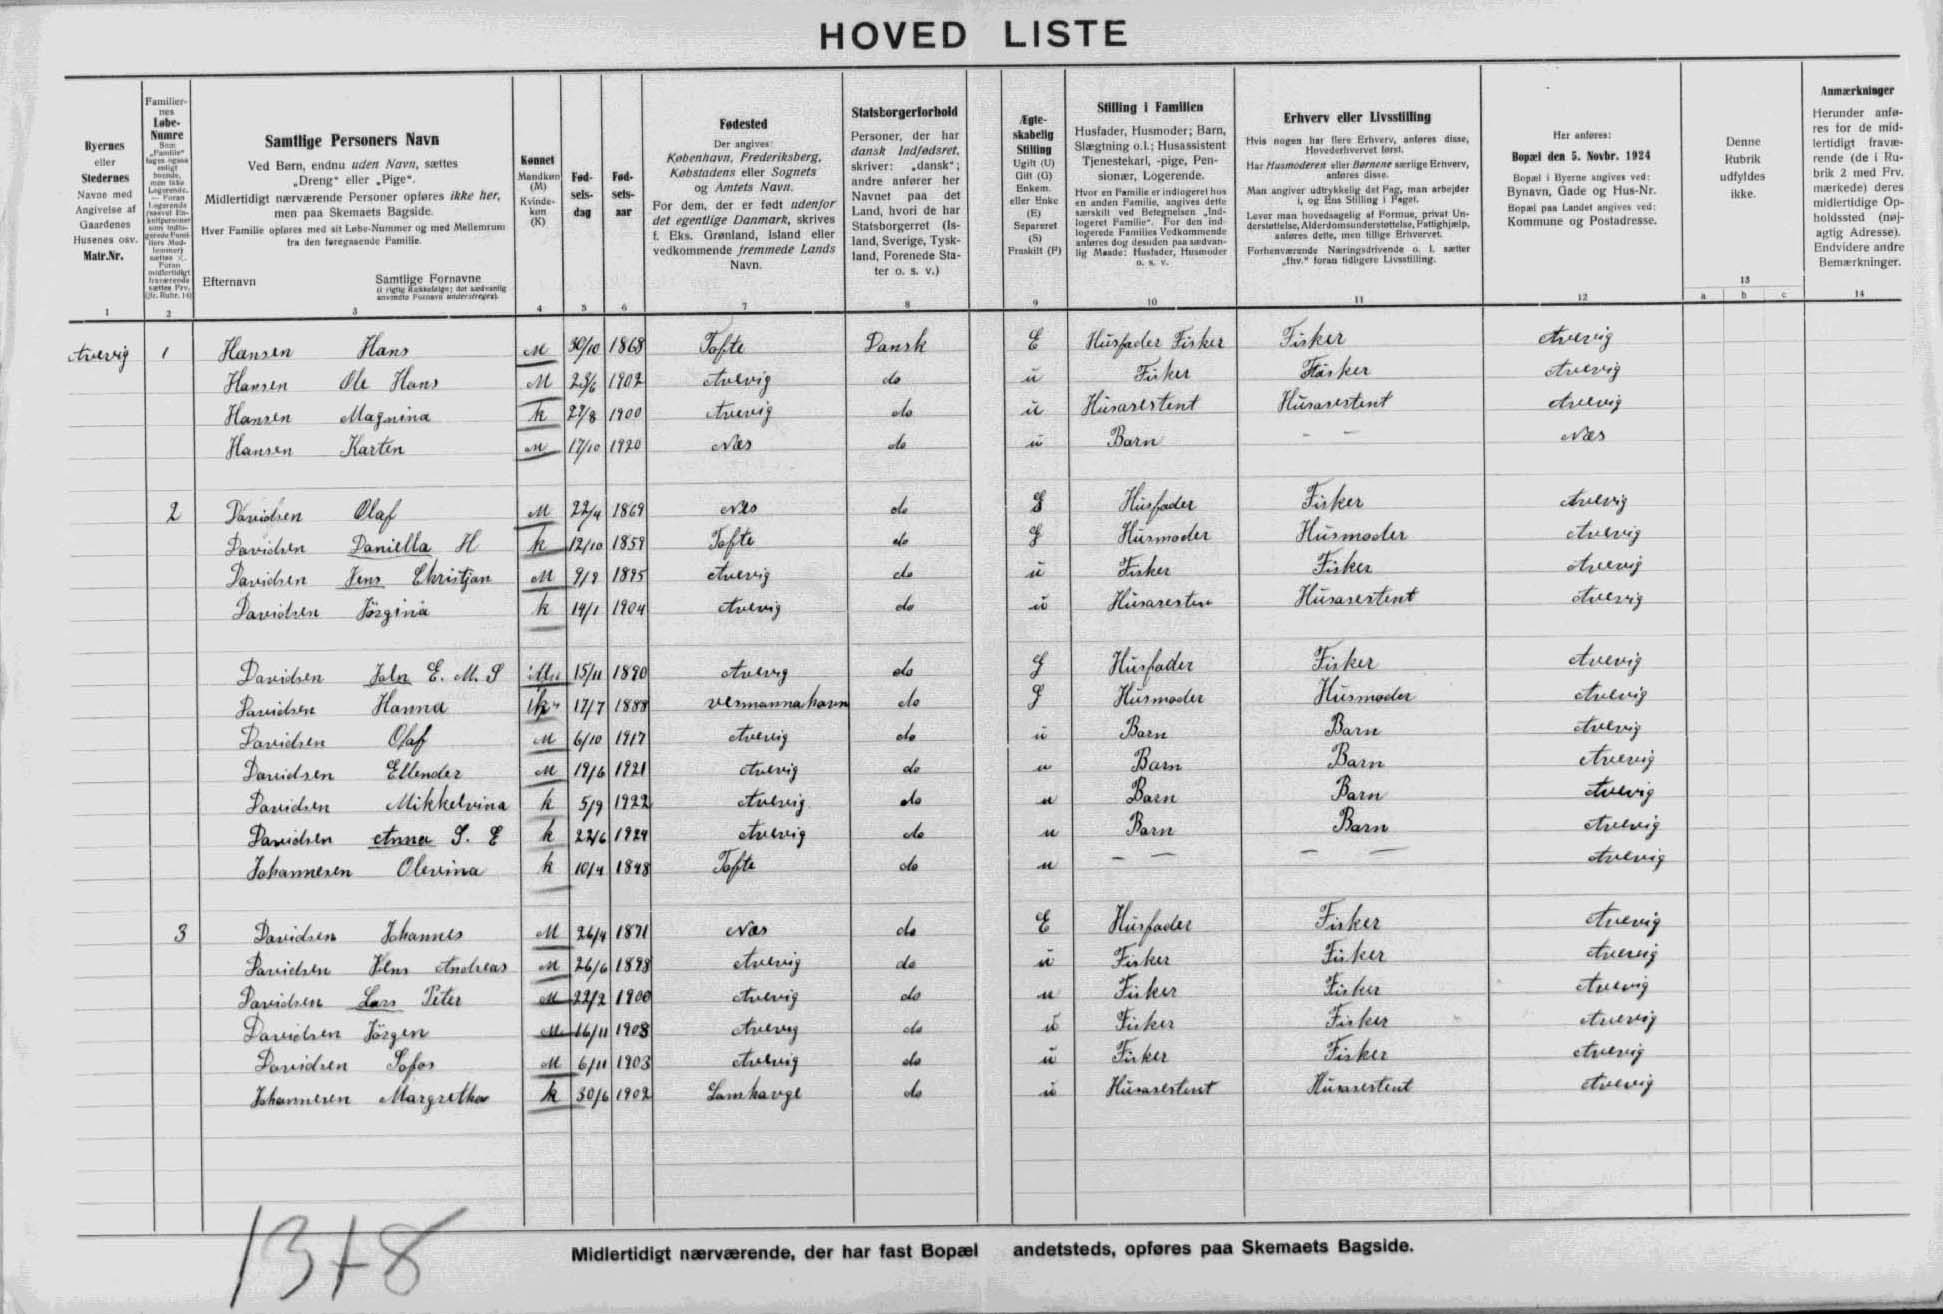 HOVED LISTE
Byernes
eller
Stedernes
Navne med
Angivelse af
Gaardenes
Husenes osv.
Matr.Nr.
1
Familier-
nes
Løbe-
Numre
2
Samtlige Personers Navn
Ved Børn, endnu uden Navn, sættes
„Dreng“ eller „Pige“.
Midlertidigt nærværende Personer opføres ikke her,
men paa Skemaets Bagside.
Hver Familie opføres med sit Løbe-Nummer og med Mellemrum
fra den foregaaende Familie.
Efternavn Samtlige Fornavne
(i rigtig Rækkefølge; det sædvanlig
anvendte Fornavn understreges).
3
Kønnet
Mandkøn
(M)
Kvinde-
køn
(K)
4
Fød-
sels-
dag
5
Fød-
sels-
aar
6
Fødested
Der angives:
København, Frederiksberg,
Købstadens eller Sognets
og Amtets Navn.
For dem, der er født udenfor
det egentlige Danmark, skrives
f. Eks. Grønland, Island eller
vedkommende fremmede Lands
Navn.
7
Statsborgerforhold
Personer, der har
dansk Indfødsret,
skriver: „dansk“;
andre anfører her
Navnet paa det
Land, hvori de har
Statsborgerret (Is-
land, Sverige, Tysk-
land, Forenede Sta-
ter o. s. v.)
8
Ægte-
skabelig
Stilling
Ugift (U)
Gift (G)
Enkem.
eller Enke
(E)
Separeret
(S)
Fraskilt (F)
9
Stilling i Familien
Husfader, Husmoder; Barn,
Slægtning o.l.; Husassistent
Tjenestekarl, -pige, Pen-
sionær, Logerende.
Hvor en Familie er indlogeret hos
en anden Familie, angives dette
særskilt ved Betegnelsen „Ind-
logeret Familie“. For den ind-
logerede Families Vedkommende
anføres dog desuden paa sædvan-
lig Maade: Husfader, Husmoder
o. s. v.
10
Erhverv eller Livsstilling
Hvis nogen har flere Erhverv, anføres disse,
Hovederhvervet først.
Har Husmoderen eller Børnene særlige Erhverv,
anføres disse.
Man angiver udtrykkelig det Fag, man arbejder
i, og Ens Stilling i Faget.
Lever man hovedsagelig af Formue, privat Un-
derstøttelse, Alderdomsunderstøttelse, Fattighjælp,
anføres dette, men tillige Erhvervet.
Forhenværende Næringsdrivende o. l. sætter
„fhv.“ foran tidligere Livsstilling.
11
Her anføres:
Bopæl den 5. Novbr. 1924
Bopæl i Byerne angives ved:
Bynavn, Gade og Hus-Nr.
Bopæl paa Landet angives ved:
Kommune og Postadresse.
12
Denne
Rubrik
udfyldes
ikke.
13
a b c
Anmærkninger
Herunder anfø-
res for de mid-
lertidigt fravæ-
rende (de i Ru-
brik 2 med Frv.
mærkede) deres
midlertidige Op-
holdssted (nøj-
agtig Adresse).
Endvidere andre
Bemærkninger.
14
Avevig 1 Hansen Hans M 30/10 1868 Tofte Dansk E Husfader Fisker Fisker Avevig
Hansen Ole Hans M 23/6 1902 Avevig do u Fisker Fisker Avevig
Hansen Magnina k 27/8 1900 Avevig do u Husasestent Husasestent Avevig
Hansen Karten M 17/10 1920 Næs do u Barn – – Næs
2 Davidsen Olaf M 22/4 1869 Næs do G Husfader Fisker Avevig
Davidsen Daniella H k 12/10 1859 Tofte do G Husmoder Husmoder Avevig
Davidsen Jens Christjan M 9/9 1895 Avevig do u Fisker Fisker Avevig
Davidsen Jörgina k 14/1 1904 Avevig do u Husasesten Husasestent Avevig
Davidsen John E. M. S M 15/11 1890 Avevig do G Husfader Fisker Avevig
Davidsen Hanna k 17/7 1888 vesmannahavn do G Husmoder Husmoder Avevig
Davidsen Olaf M 6/10 1917 Avevig do u Barn Barn Avevig
Davidsen Ellender M 19/6 1921 Avevig do u Barn Barn Avevig
Davidsen Mikkelvina k 5/9 1922 Avevig do u Barn Barn Avevig
Davidsen Anna S. E k 22/6 1924 Avevig do u Barn Barn Avevig
Johannesen Olevina k 10/4 1848 Tofte do u – – – – Avevig
3 Davidsen Johannes M 26/4 1871 Næs do E Husfader Fisker Avevig
Davidsen Jens Andreas M 26/6 1898 Avevig do u Fisker Fisker Avevig
Davidsen Lars Peter M 22/2 1900 Avevig do u Fisker Fisker Avevig
Davidsen Jörgen M 16/11 1908 Avevig do u Fisker Fisker Avevig
Davidsen Sofos M 6/11 1903 Avevig do u Fisker Fisker Avevig
Johannesen Margretha k 30/6 1902 Lamhavge do u Husasestent Husasestent Avevig
13+8
Midlertidigt nærværende, der har fast Bopæl andetsteds, opføres paa Skemaets Bagside.